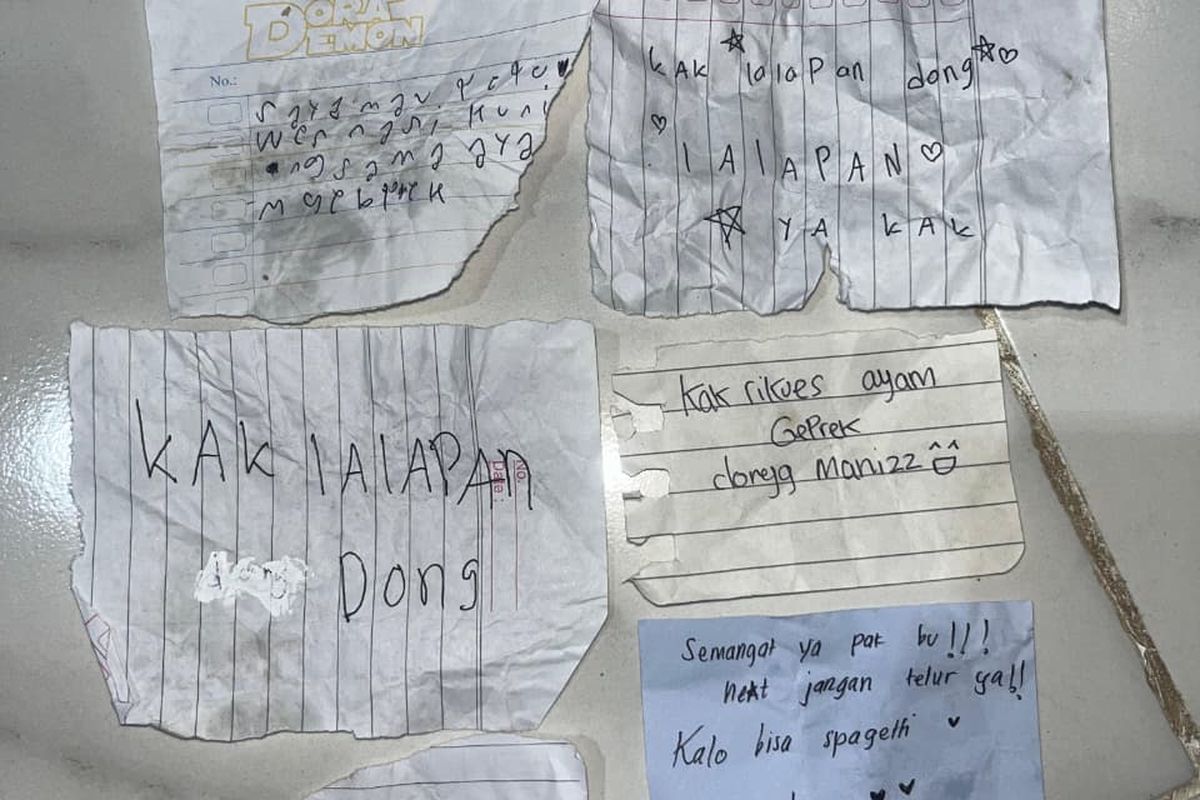 DORA
DEMON
No.:
saya mau
nasi kuni
ng sama aya
KAK lalaPan dong
lAlAPAN
YA KAK
KAK lAlAPAn
No.
Date:
Dong
Kak rikues ayam
GePrek
dongg Manizz
Semangat ya pak bu!!!
next jangan telur ya!!
Kalo bisa spagethi